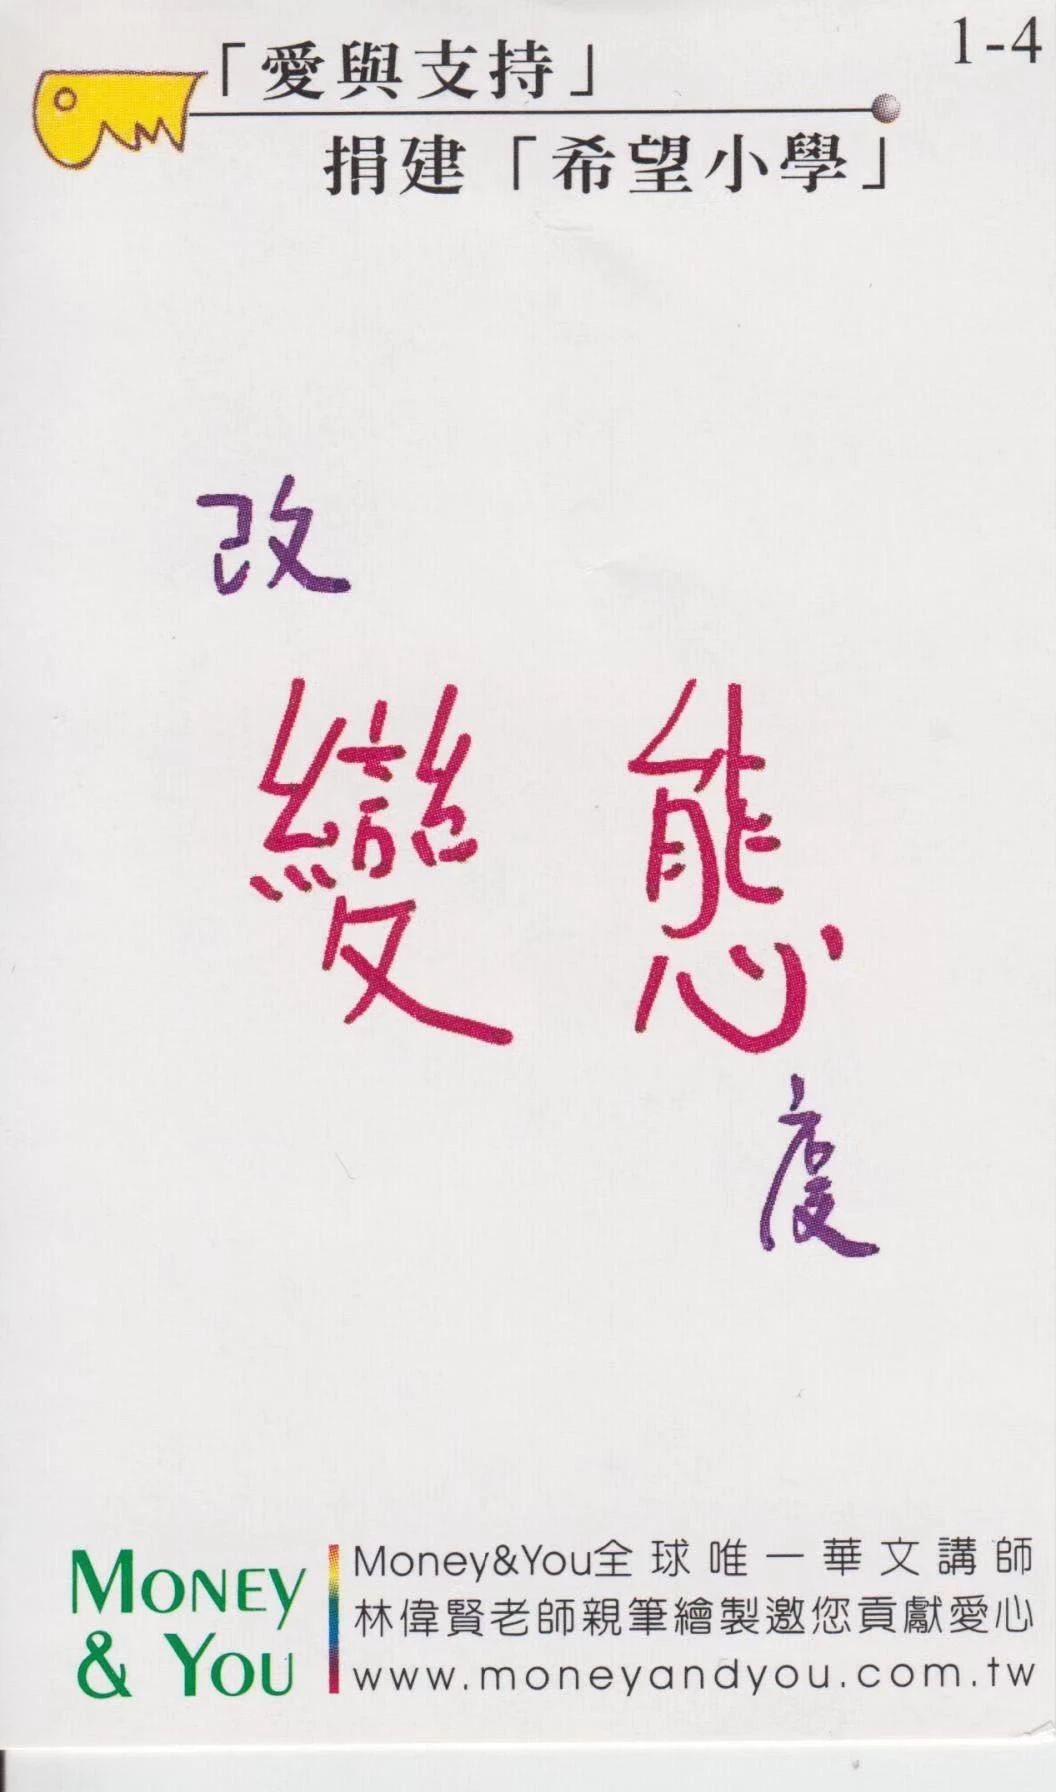 1-4
「愛與支持」
捐建「希望小學」
改
變 態
度
MONEY
& YOU
Money&You全球唯一華文講師
林偉賢老師親筆繪製邀您貢獻愛心
www.moneyandyou.com.tw